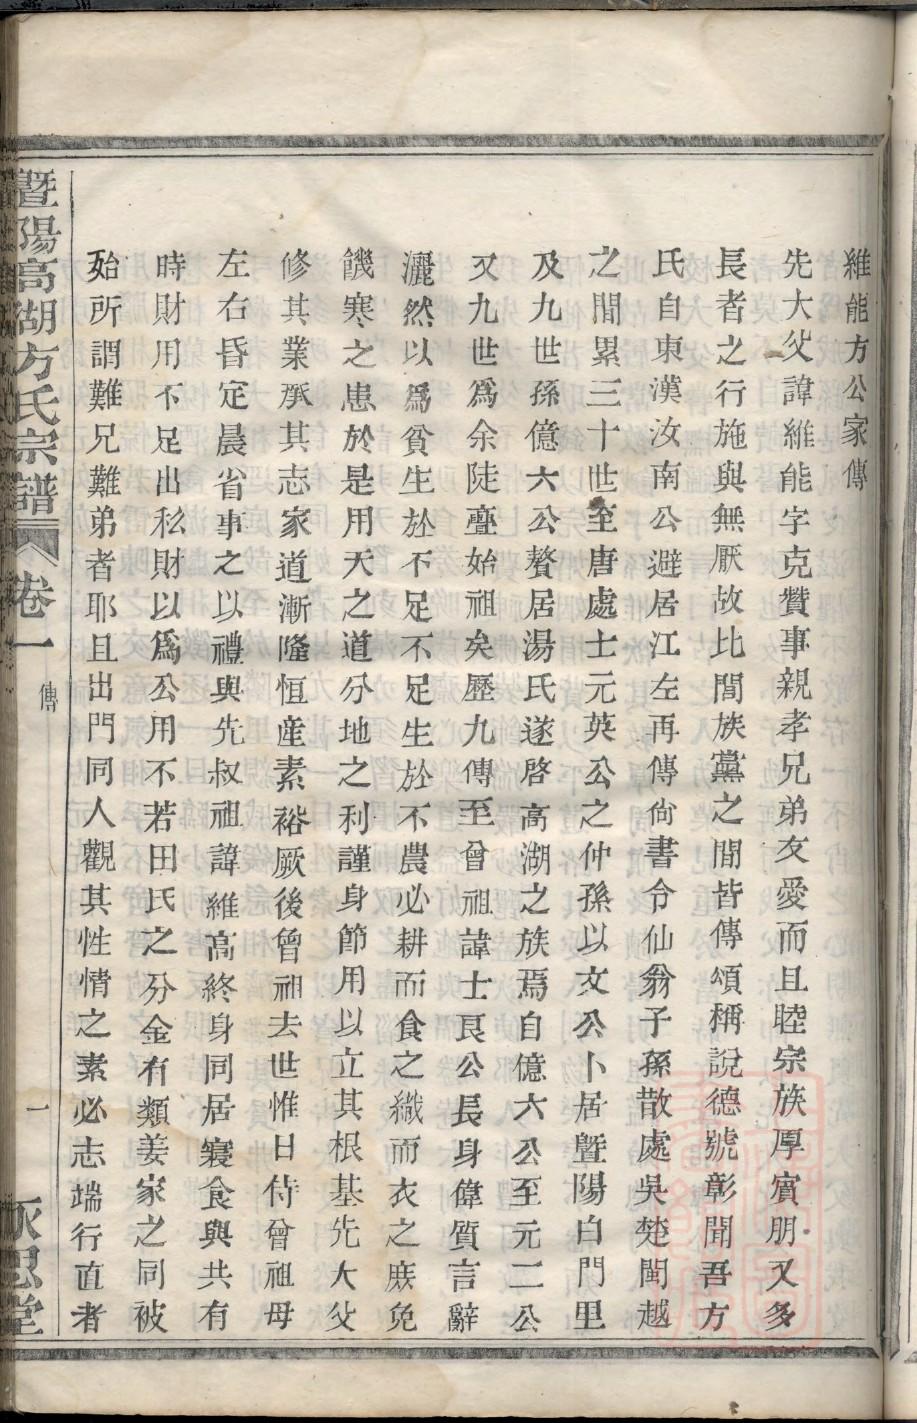 維能方公家傳
先大父諱維能字克贊事親孝兄弟友愛而且睦宗族厚賓朋又多
長者之行施與無厭故比閭族黨之間皆傳頌稱說德號彰聞吾方
氏自東漢汝南公避居江左再傳尙書令仙翁子孫散處吳楚閩越
之間累三十世至唐處士元英公之仲孫以文公卜居曁陽白門里
及九世孫億六公贅居湯氏遂啓高湖之族焉自億六公至元二公
又九世爲余陡亹始祖矣歷九傳至曾祖諱士良公長身偉質言辭
灑然以爲貧生於不足不足生於不農必耕而食之織而衣之庶免
饑寒之患於是用天之道分地之利謹身節用以立其根基先大父
修其業承其志家道漸隆恒産素裕厥後曾祖去世惟日侍曾祖母
左右昏定晨省事之以禮與先叔祖諱維高終身同居寢食與共有
時財用不足出私財以爲公用不若田氏之分金有類姜家之同被
殆所謂難兄難弟者耶且出門同人觀其性情之素必志端行直者
曁陽高湖方氏宗譜 卷一 傳 一 永思堂